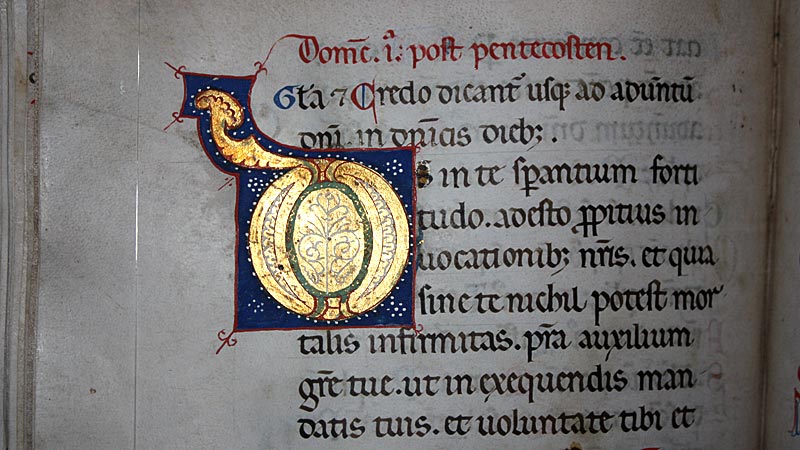 Dom̄c. i᷎. post pentecosten.
Gl̄a ⁊ Credo dicant̄ usq; ad aduentū
dn̄i in dn̄icis dieb;.
Ds in te sꝑantium forti
tudo. adesto ꝓpitius in
uocationib; nr̄is. et quia
sine te nichil potest mor
talis infirmitas. pr̄a auxilium
gr̄e tue. ut in exequendis man
datis tuis. et uoluntate tibi et